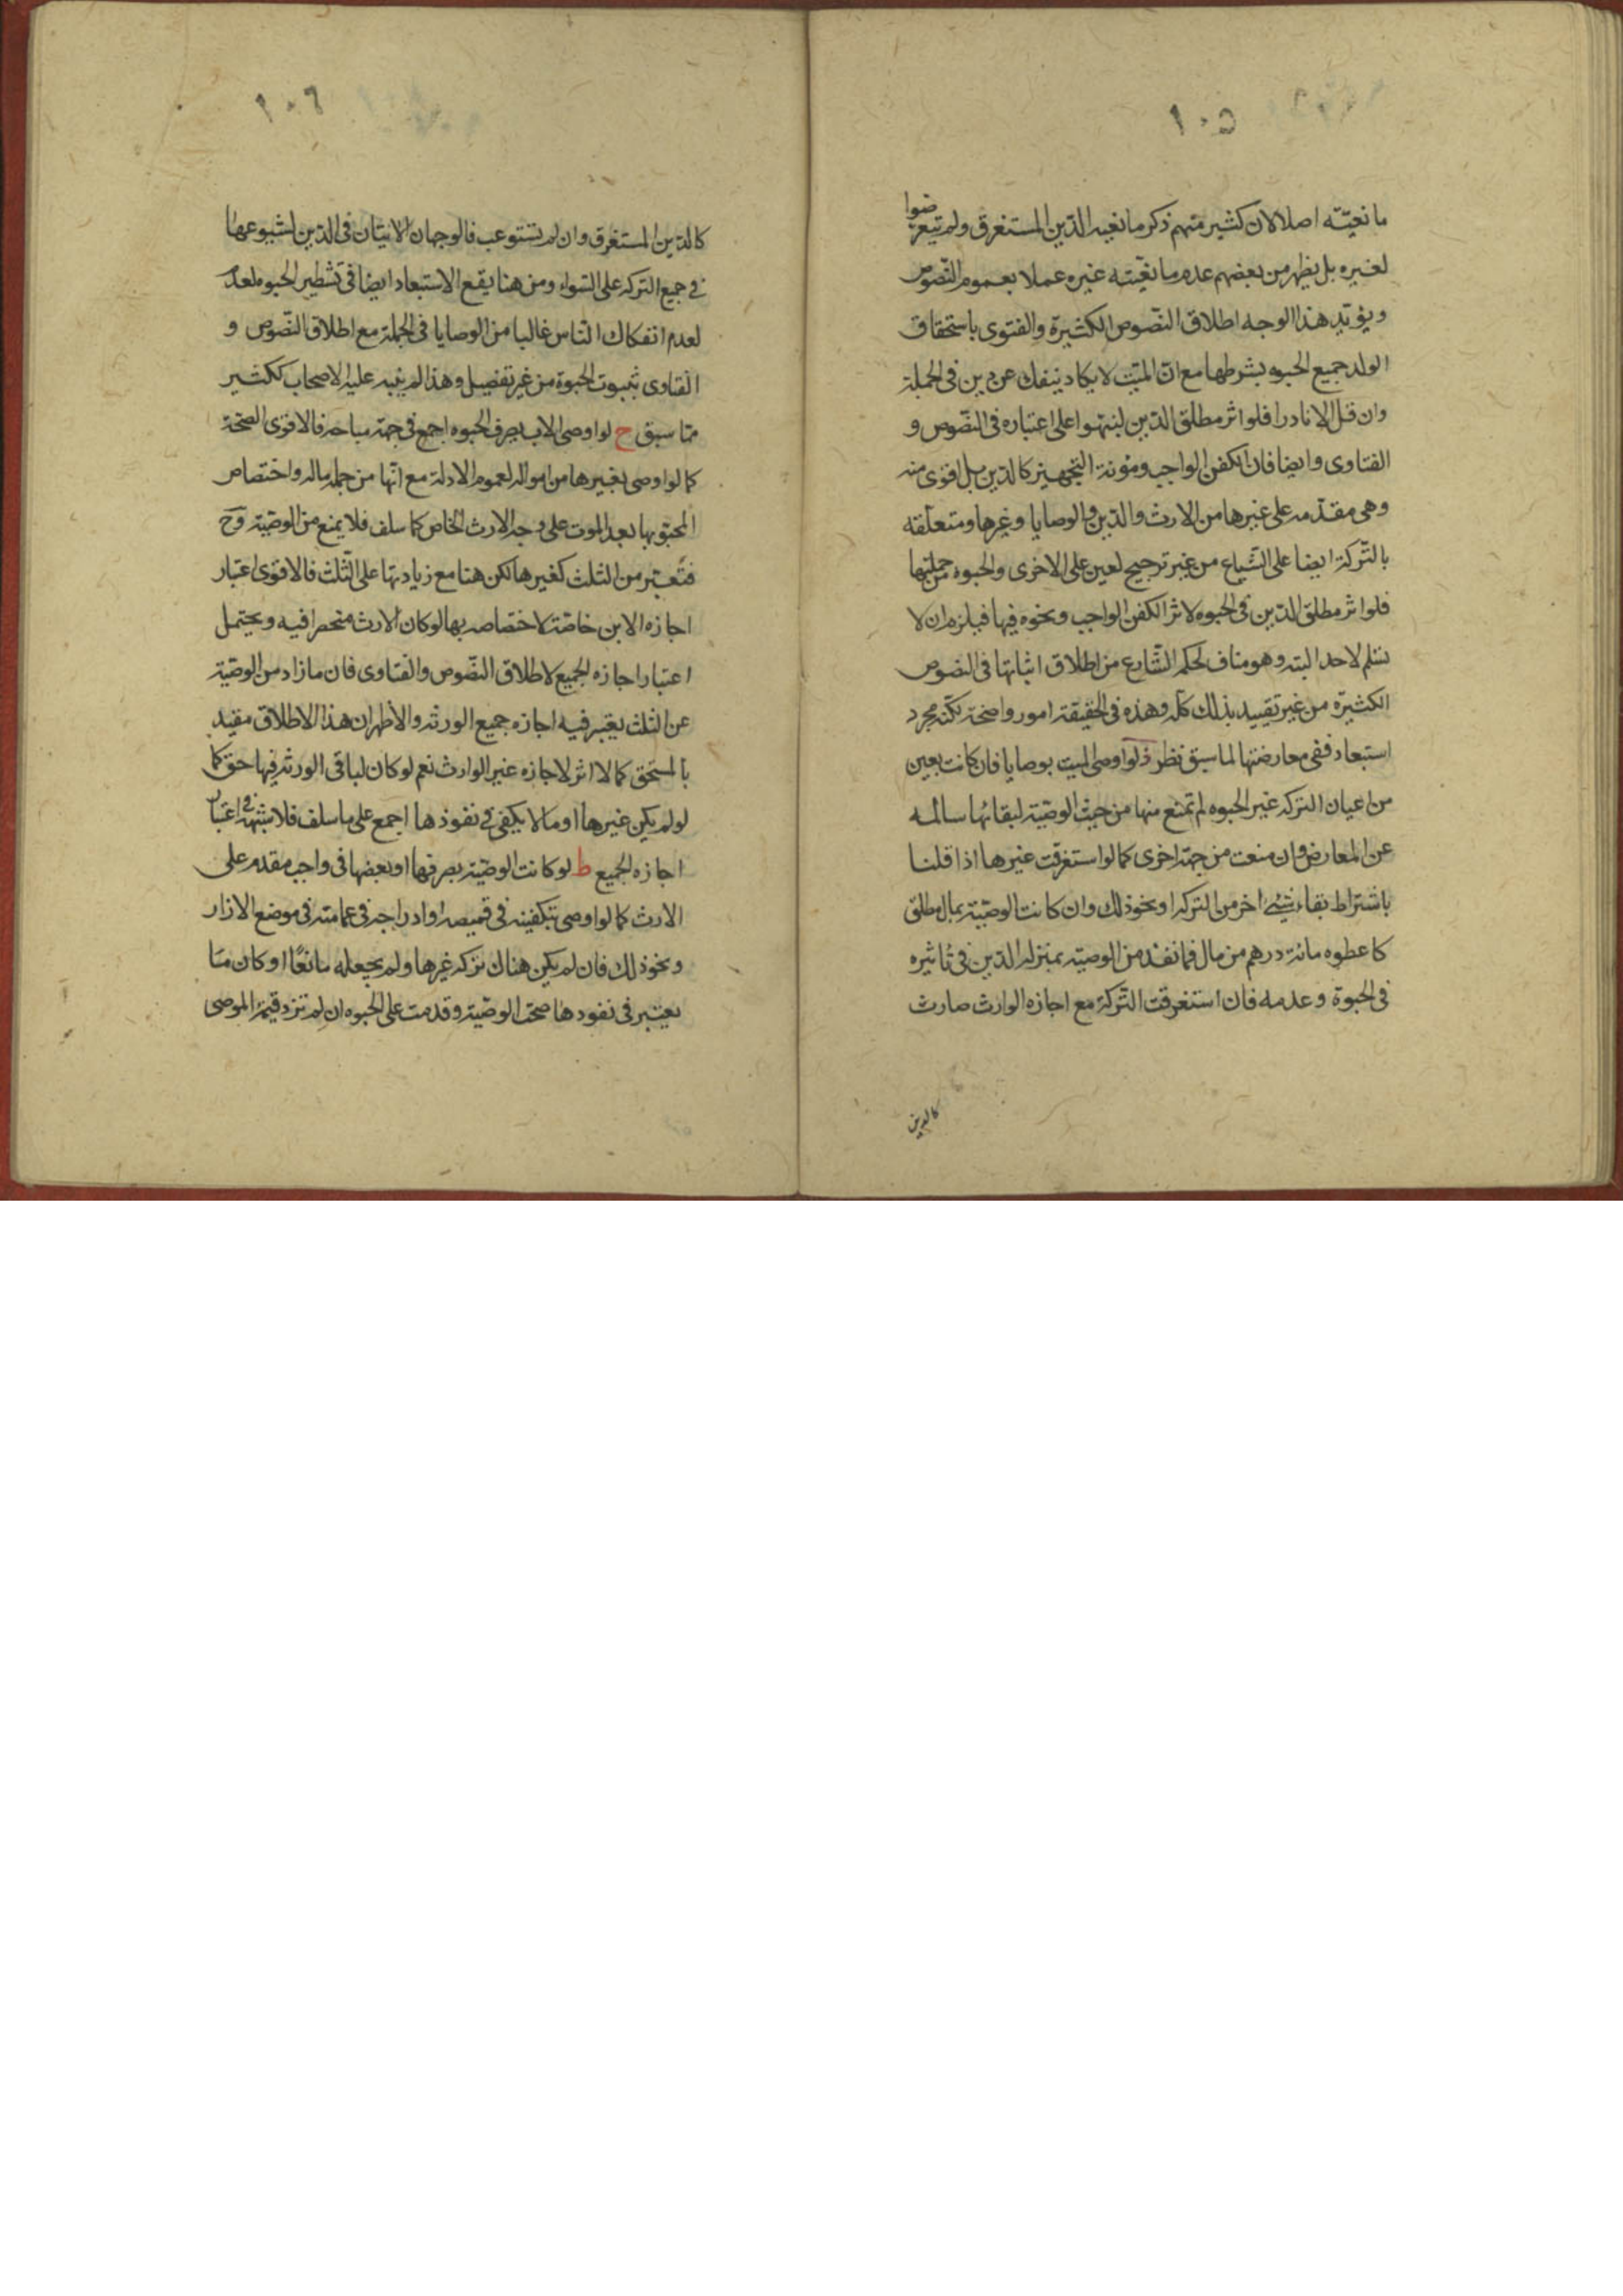 ١٠٥
مانعيّته اصلا لان كثير منهم ذكر مانعيه الدّين المستغرق ولم يتعرضوا
لغيره بل يظهر من بعضهم عدم مانعّيته غيره عملا بعموم النّصوص
ويؤيّد هذا الوجه اطلاق النّصوص الكثيرة والفتوى باستحقاق
الولد جميع الحبوه بشرطها مع انّ الميّت لا يكاد ينفك عن دين فى الجملة
وان قل الا نادرا فلو اثر مطلق الدّين لنبّهوا على اعتباره فى النّصوص و
الفتاوى وايضا فان الكفن الواجب ومؤنة التجهيز كالدّين بل اقوى منه
وهى مقدّمه على غيرها من الارث والدّين والوصايا وغيرها ومتعلّقه
بالتّركة ايضا على الشّياع من غير ترجيح لعين على الاخرى والحبوه من جملتها
فلو اثر مطلق الدّين فى الحبوه لاثر الكفن الواجب ونحوه فيها فيلزم ان لا
تسلم لاحد البته وهو مناف لحكم الشّارع من اطلاق اثباتها فى النصوص
الكثيرة من غير تقييد بذلك كلّه وهذه فى الحقيقة امور واضحة لكنّه مجرد
استبعاد ففى معارضتها لما سبق نظر ز لو اوصى الميت بوصايا فان كانت بعين
من اعيان التركه غير الحبوه لم تمنع منها من حيث الوصيّة لبقائها سالمه
عن المعارض وان منعت من جهة اخرى كما لو استغرقت غيرها اذا قلنا
باشتراط بقاء شئ اخر من التركه او نحو ذلك وان كانت الوصيّة بمال مطلق
كاعطوه مائة درهم من مال فما نفذ من الوصيّة بمنزله الدّين فى تاثيره
فى الحبوة وعدمه فان استغرقت التّركة مع اجازه الوارث صارت
كالدين
١٠٦
كالدّين المستغرق وان لم تستوعب فالوجهان الاتيان فى الدّين لشيوعها
فى جميع التركه على السّواء ومن هنا يقع الاستبعاد ايضا فى تشطير الحبوه لعدم
لعدم انفكاك النّاس غالبا من الوصايا فى الجملة مع اطلاق النّصوص و
الفتاوى بثبوت الحبوة من غير تفصيل وهذا لم ينبه عليه الاصحاب ككثير
ممّا سبق ح لو اوصى الاب بصرف الحبوه اجمع فى جهة مباحة فالاقوى الصحّة
كما لو اوصى بغيرها من امواله لعموم الادلة مع انّها من جملة ماله واختصاص
المحبو بها بعد الموت على وجه الارث الخاص كما سلف فلا يمنع من الوصيّة وح
فتعتبر من الثلث كغيرها لكن هنا مع زيادتها على الثّلث فالاقوى اعتبار
اجازه الابن خاصّة لاختصاصه بها لو كان الارث منحصرا فيه ويحتمل
اعتبار اجازه الجميع لاطلاق النّصوص والفتاوى فان ما زاد من الوصيّة
عن الثلث يعتبر فيه اجازه جميع الورثه والأظهر ان هذا الاطلاق مقيّد
بالمستحق كما لا اثر لاجازه غير الوارث نعم لو كان لباقى الورثه فيها حق كما
لو لم يكن غيرها او ما لا يكفى فى نفوذها اجمع على ما سلف فلا شبهة فى اعتبار
اجازه الجميع ط لو كانت الوصيّة بصرفها او بعضها فى واجب مقدم على
الارث كما لو اوصى بتكفينه فى قميصه او ادراجه فى عمامته فى موضع الازار
ونحو ذلك فان لم يكن هناك تركه غيرها ولم يجعله مانعًا او كان ممّا
يعتبر فى نفودها صحّت الوصيّة وقدمت على الحبوه ان لم تزد قيمة الموصى